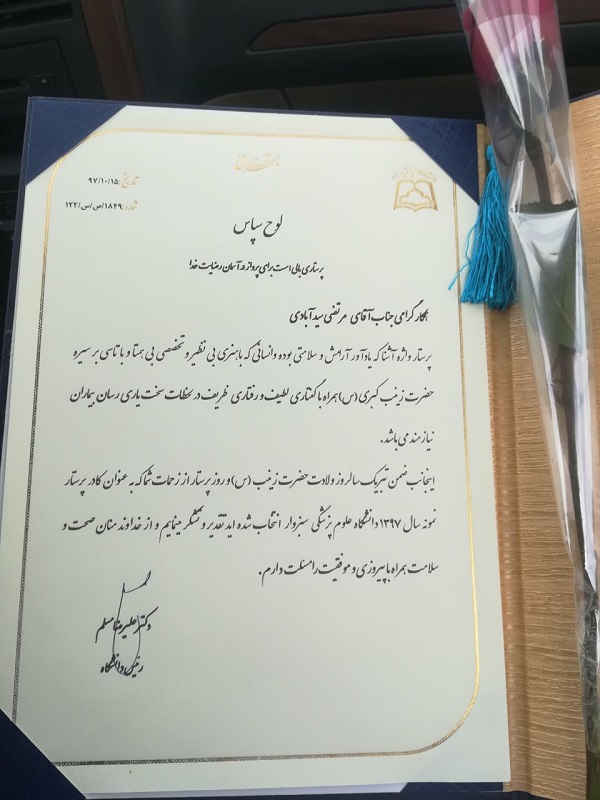 باسمه تعالی
تاریخ: ۹۷/۱۰/۱۵
شماره: ۱۸۴۹/ص/س/۱۲۲
لوح سپاس
پرستاری بالی است برای پرواز در آسمان رضایت خدا
همکار گرامی جناب آقای مرتضی سیدآبادی
پرستار واژه آشنا که یادآور آرامش و سلامتی بوده و انسانی که با هنری بی نظیر و تخصصی بی همتا و با تاسی بر سیره
حضرت زینب کبری (س) همراه با گفتاری لطیف و رفتاری ظریف در لحظات سخت یاری رسان بیماران
نیازمند می باشد.
اینجانب ضمن تبریک سالروز ولادت حضرت زینب (س) و روز پرستار از زحمات شما که به عنوان کادر پرستار
نمونه سال ۱۳۹۷ دانشگاه علوم پزشکی سبزوار انتخاب شده اید تقدیر و تشکر مینمایم و از خداوند منان صحت و
سلامت همراه با پیروزی و موفقیت را مسئلت دارم.
دکتر علیرضا مسلم
رئیس دانشگاه